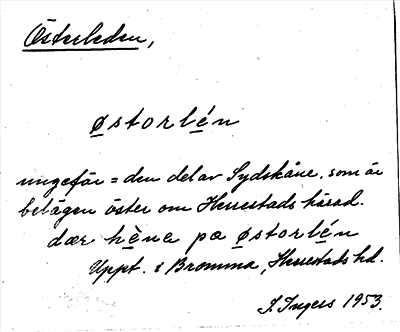 Österleden,
østorlén
ungefär = den del av Sydskåne, som är
belägen öster om Herrestads härad.
dær hène pa østorlén
Uppt. i Bromma, Herrestads hd.
I. Ingers 1953.